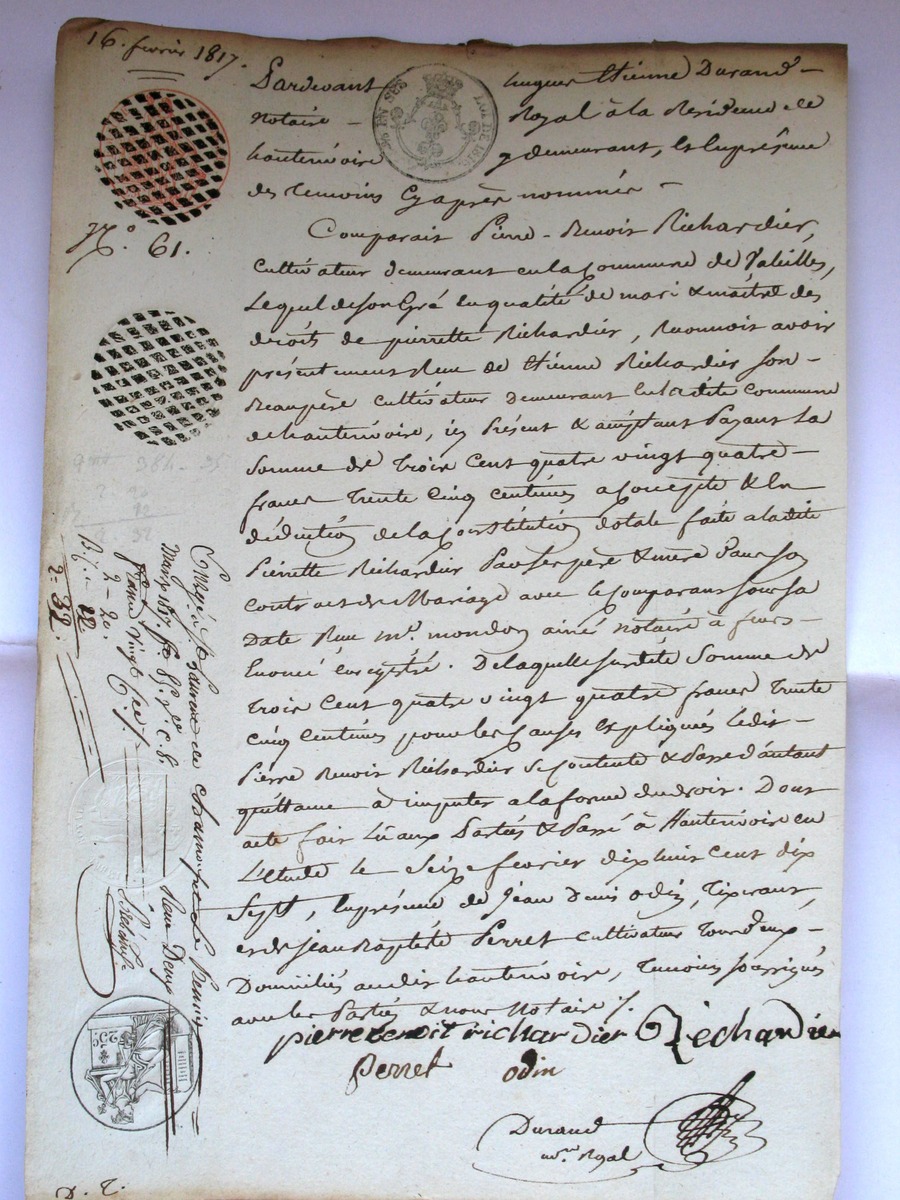 16. fevrier 1817.
Pardevant hugues Etienne Durand
notaire Royal à la Residence de
hauterivoire y demeurant, En la présence
des temoins Cy après nommés
N.º 61.
Comparait Pierre-Benoit Richardier,
Cultivateur demeurant en la Commune de Valeilles,
Lequel de son Gré En qualité de mari & maître des
droits de pierrette Richardier, Reconnoit avoir
présentement Reçu de Etienne Richardier son
Beaupère Cultivateur demeurant En ladite Commune
de hauterivoire, icy Présent & acceptant Payant La
Somme de Trois Cent quatre vingt quatre
francs Trente Cinq Centimes acompte & En
déduction de la Constitution dotale faite a ladite
Pierrette Richardier Par Ses père & mère Dans Son
Contract de Mariage avec le Comparant Sous Sa
Date Reçu m.e mondon ainé notaire à feurs
Enoncé Enregistré. De laquelle Susdite Somme de
Trois Cent quatre vingt quatre francs Trente
Cinq Centimes pour les Causes Expliquées Ledit
Pierre Benoit Richardier Se Contente & Passe d'autant
quittance à imputer a la forme du droit. Dont
acte fait Lu aux Parties & Passé à Hauterivoire En
L'Etude le Seize fevrier dix huit Cent dix
Sept, En présence de Jean Denis Odin, Tixerant,
et de Jean Baptiste Perret Cultivateur Tous deux
Domiciliés audit hauterivoire, Temoins Soussignés
avec les Parties & nous Notaire ./.
pierre benoit richardier Richardier
Perret odin
Durand
no.re Royal
St Laurent de Chamousset
mars 1817. f.º
francs vingt
2 - 20.
22
2 - 32.
25 C
D. T.